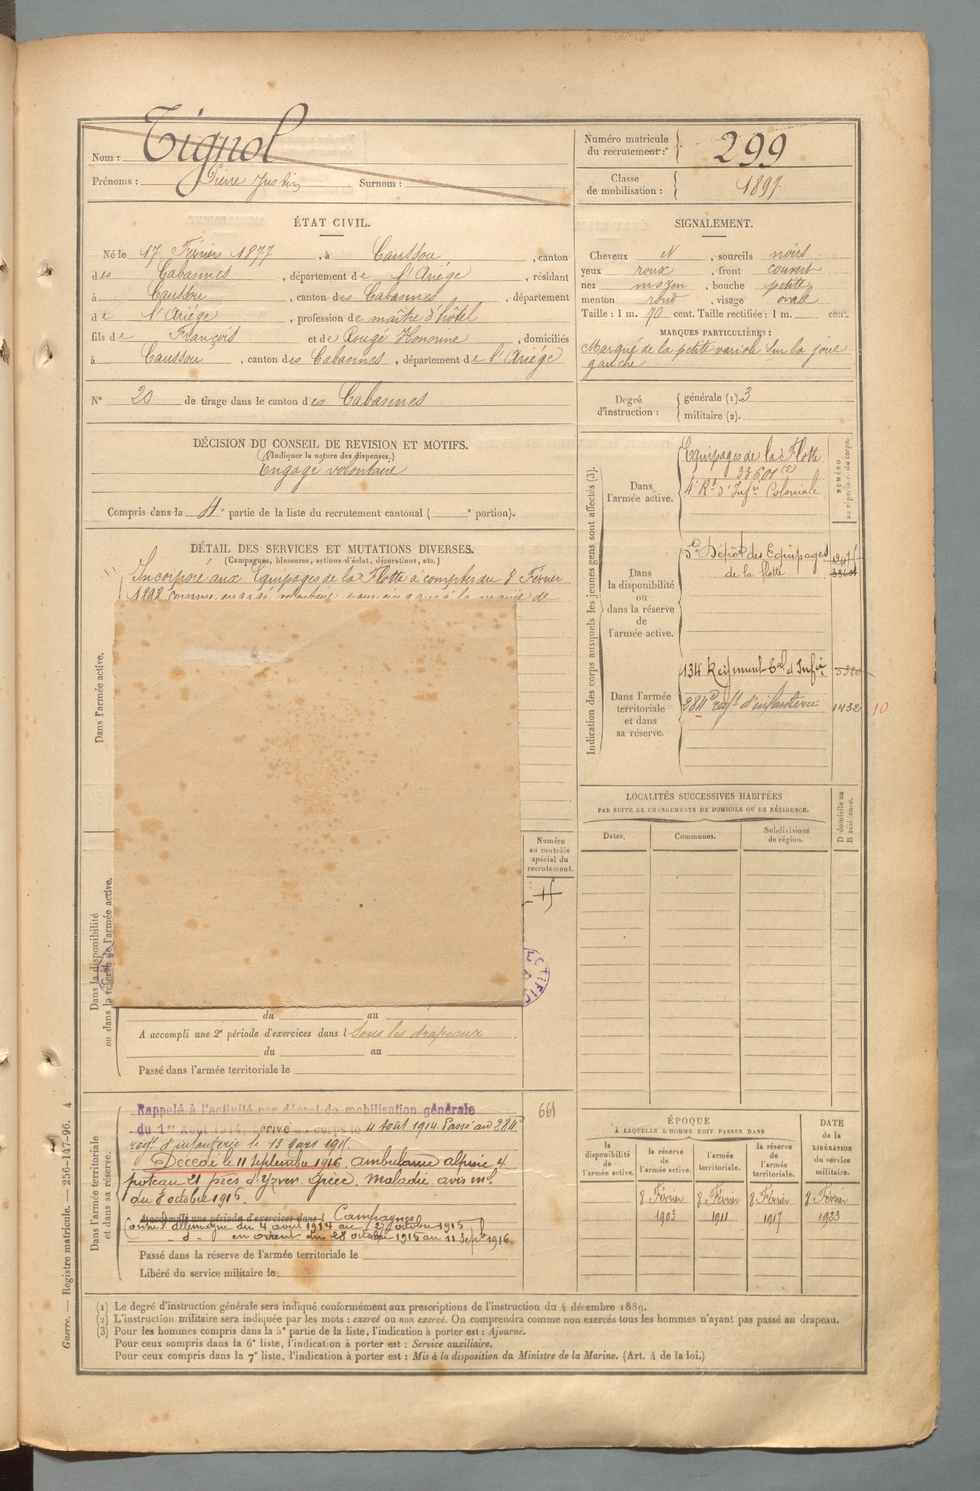 Nom : Tignol
Prénoms : Pierre Justin Surnom :
Numéro matricule du recrutement : 299
Classe de mobilisation : 1897
ÉTAT CIVIL.
Né le 17 Février 1877, à Caussou, canton
des Cabannes, département de l'Ariège, résidant
à Caussou, canton des Cabannes, département
de l'Ariège, profession de maître d'hôtel
fils de François et de Rougé Honorine, domiciliés
à Caussou, canton des Cabannes, département de l'Ariège
N° 20 de tirage dans le canton des Cabannes
SIGNALEMENT.
Cheveux N, sourcils noirs
yeux roux, front couvert
nez moyen, bouche petite
menton rond, visage ovale
Taille : 1 m. 70 cent. Taille rectifiée : 1 m. cent.
MARQUES PARTICULIÈRES :
Marqué de la petite variole sur la joue
gauche
Degré d'instruction : générale (1). 3
militaire (2).
DÉCISION DU CONSEIL DE REVISION ET MOTIFS.
(Indiquer la nature des dispenses.)
Engagé volontaire
Compris dans la 4e partie de la liste du recrutement cantonal ( e portion).
DÉTAIL DES SERVICES ET MUTATIONS DIVERSES.
(Campagnes, blessures, actions d'éclat, décorations, etc.)
Incorporé aux Equipages de la Flotte à compter du 8 Février
1898 comme engagé volontaire
Dans l'armée active.
Dans la disponibilité
ou dans la réserve de l'armée active.
Numéro
au contrôle
spécial du
recrutement.
du au
A accompli une 2e période d'exercices dans l sous les drapeaux
du au
Passé dans l'armée territoriale le
Dans l'armée territoriale
et dans sa réserve.
Rappelé à l'activité par décret de mobilisation générale
du 1er Août 1914, arrivé au corps le 4 août 1914. Passé au 284e
régt d'infanterie le 13 mars 1915.
Décédé le 11 septembre 1916, ambulance alpine 4
du 8 octobre 1916.
A accompli une période d'exercices dans l Campagnes
Contre l'allemagne du 4 août 1914 au 27 octobre 1915
d° en orient du 28 octobre 1915 au 11 sept 1916
661
Passé dans la réserve de l'armée territoriale le
Libéré du service militaire le
Indication des corps auxquels les jeunes gens sont affectés (3).
NUMÉRO
au répertoire du corps.
Dans
l'armée active.
Equipages de la Flotte
33601 (5)
4e Rt d'Infie Coloniale
Dans
la disponibilité
ou
dans la réserve
de
l'armée active.
5e Dépôt des Equipages
de la flotte
Dans l'armée
territoriale
et dans
sa réserve.
134 Régiment Tal d'Infie
284e régt d'infanterie
1432
10
LOCALITÉS SUCCESSIVES HABITÉES
PAR SUITE DE CHANGEMENTS DE DOMICILE OU DE RÉSIDENCE.
Dates.
Communes.
Subdivisions
de région.
D domicile ou
R résidence.
ÉPOQUE
À LAQUELLE L'HOMME DOIT PASSER DANS
DATE
de la
LIBÉRATION
du service
militaire.
la disponibilité de l'armée active.
la réserve de l'armée active.
l'armée territoriale.
la réserve de l'armée territoriale.
8 Février 8 Février 8 Février 8 Février
1903 1911 1917 1923
(1) Le degré d'instruction générale sera indiqué conformément aux prescriptions de l'instruction du 4 décembre 1889.
(2) L'instruction militaire sera indiquée par les mots : exercé ou non exercé. On comprendra comme non exercés tous les hommes n'ayant pas passé au drapeau.
(3) Pour les hommes compris dans la 5e partie de la liste, l'indication à porter est : Ajourné.
Pour ceux compris dans la 6e liste, l'indication à porter est : Service auxiliaire.
Pour ceux compris dans la 7e liste, l'indication à porter est : Mis à la disposition du Ministre de la Marine. (Art. 4 de la loi.)
Guerre. — Registre matricule. — 256-147-96. 4